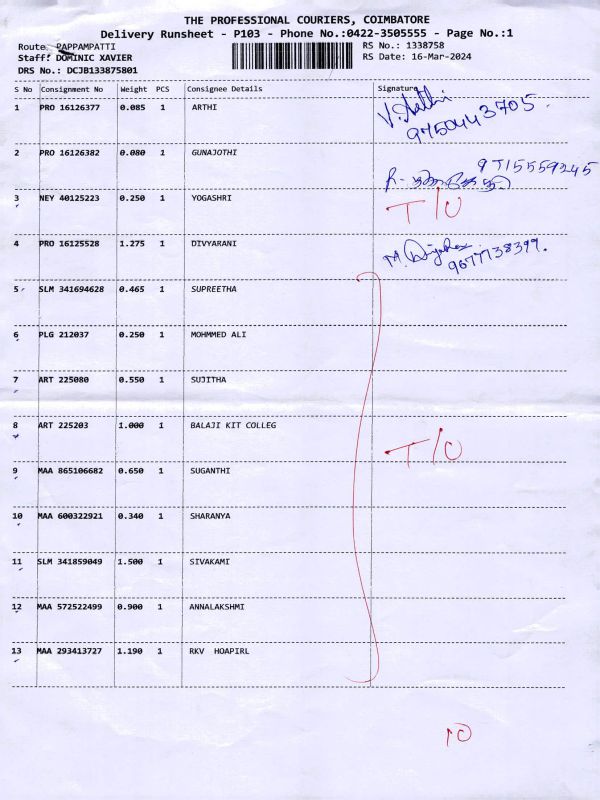 THE PROFESSIONAL COURIERS, COIMBATORE
Delivery Runsheet - P103 - Phone No.:0422-3505555 - Page No.:1
Route. PAPPAMPATTI RS No.: 1338758
Staff: DOMINIC XAVIER RS Date: 16-Mar-2024
DRS No.: DCJB133875801
S No Consignment No Weight PCS Consignee Details Signature
1 PRO 16126377 0.085 1 ARTHI V. Arthi
9750443705
2 PRO 16126382 0.080 1 GUNAJOTHI 9715559245
3 NEY 40125223 0.250 1 YOGASHRI T/O
4 PRO 16125528 1.275 1 DIVYARANI M.
9677138399.
5 SLM 341694628 0.465 1 SUPREETHA
6 PLG 212037 0.250 1 MOHMMED ALI
7 ART 225080 0.550 1 SUJITHA
8 ART 225203 1.000 1 BALAJI KIT COLLEG T/O
9 MAA 865106682 0.650 1 SUGANTHI
10 MAA 600322921 0.340 1 SHARANYA
11 SLM 341859049 1.500 1 SIVAKAMI
12 MAA 572522499 0.900 1 ANNALAKSHMI
13 MAA 293413727 1.190 1 RKV HOAPIRL
10